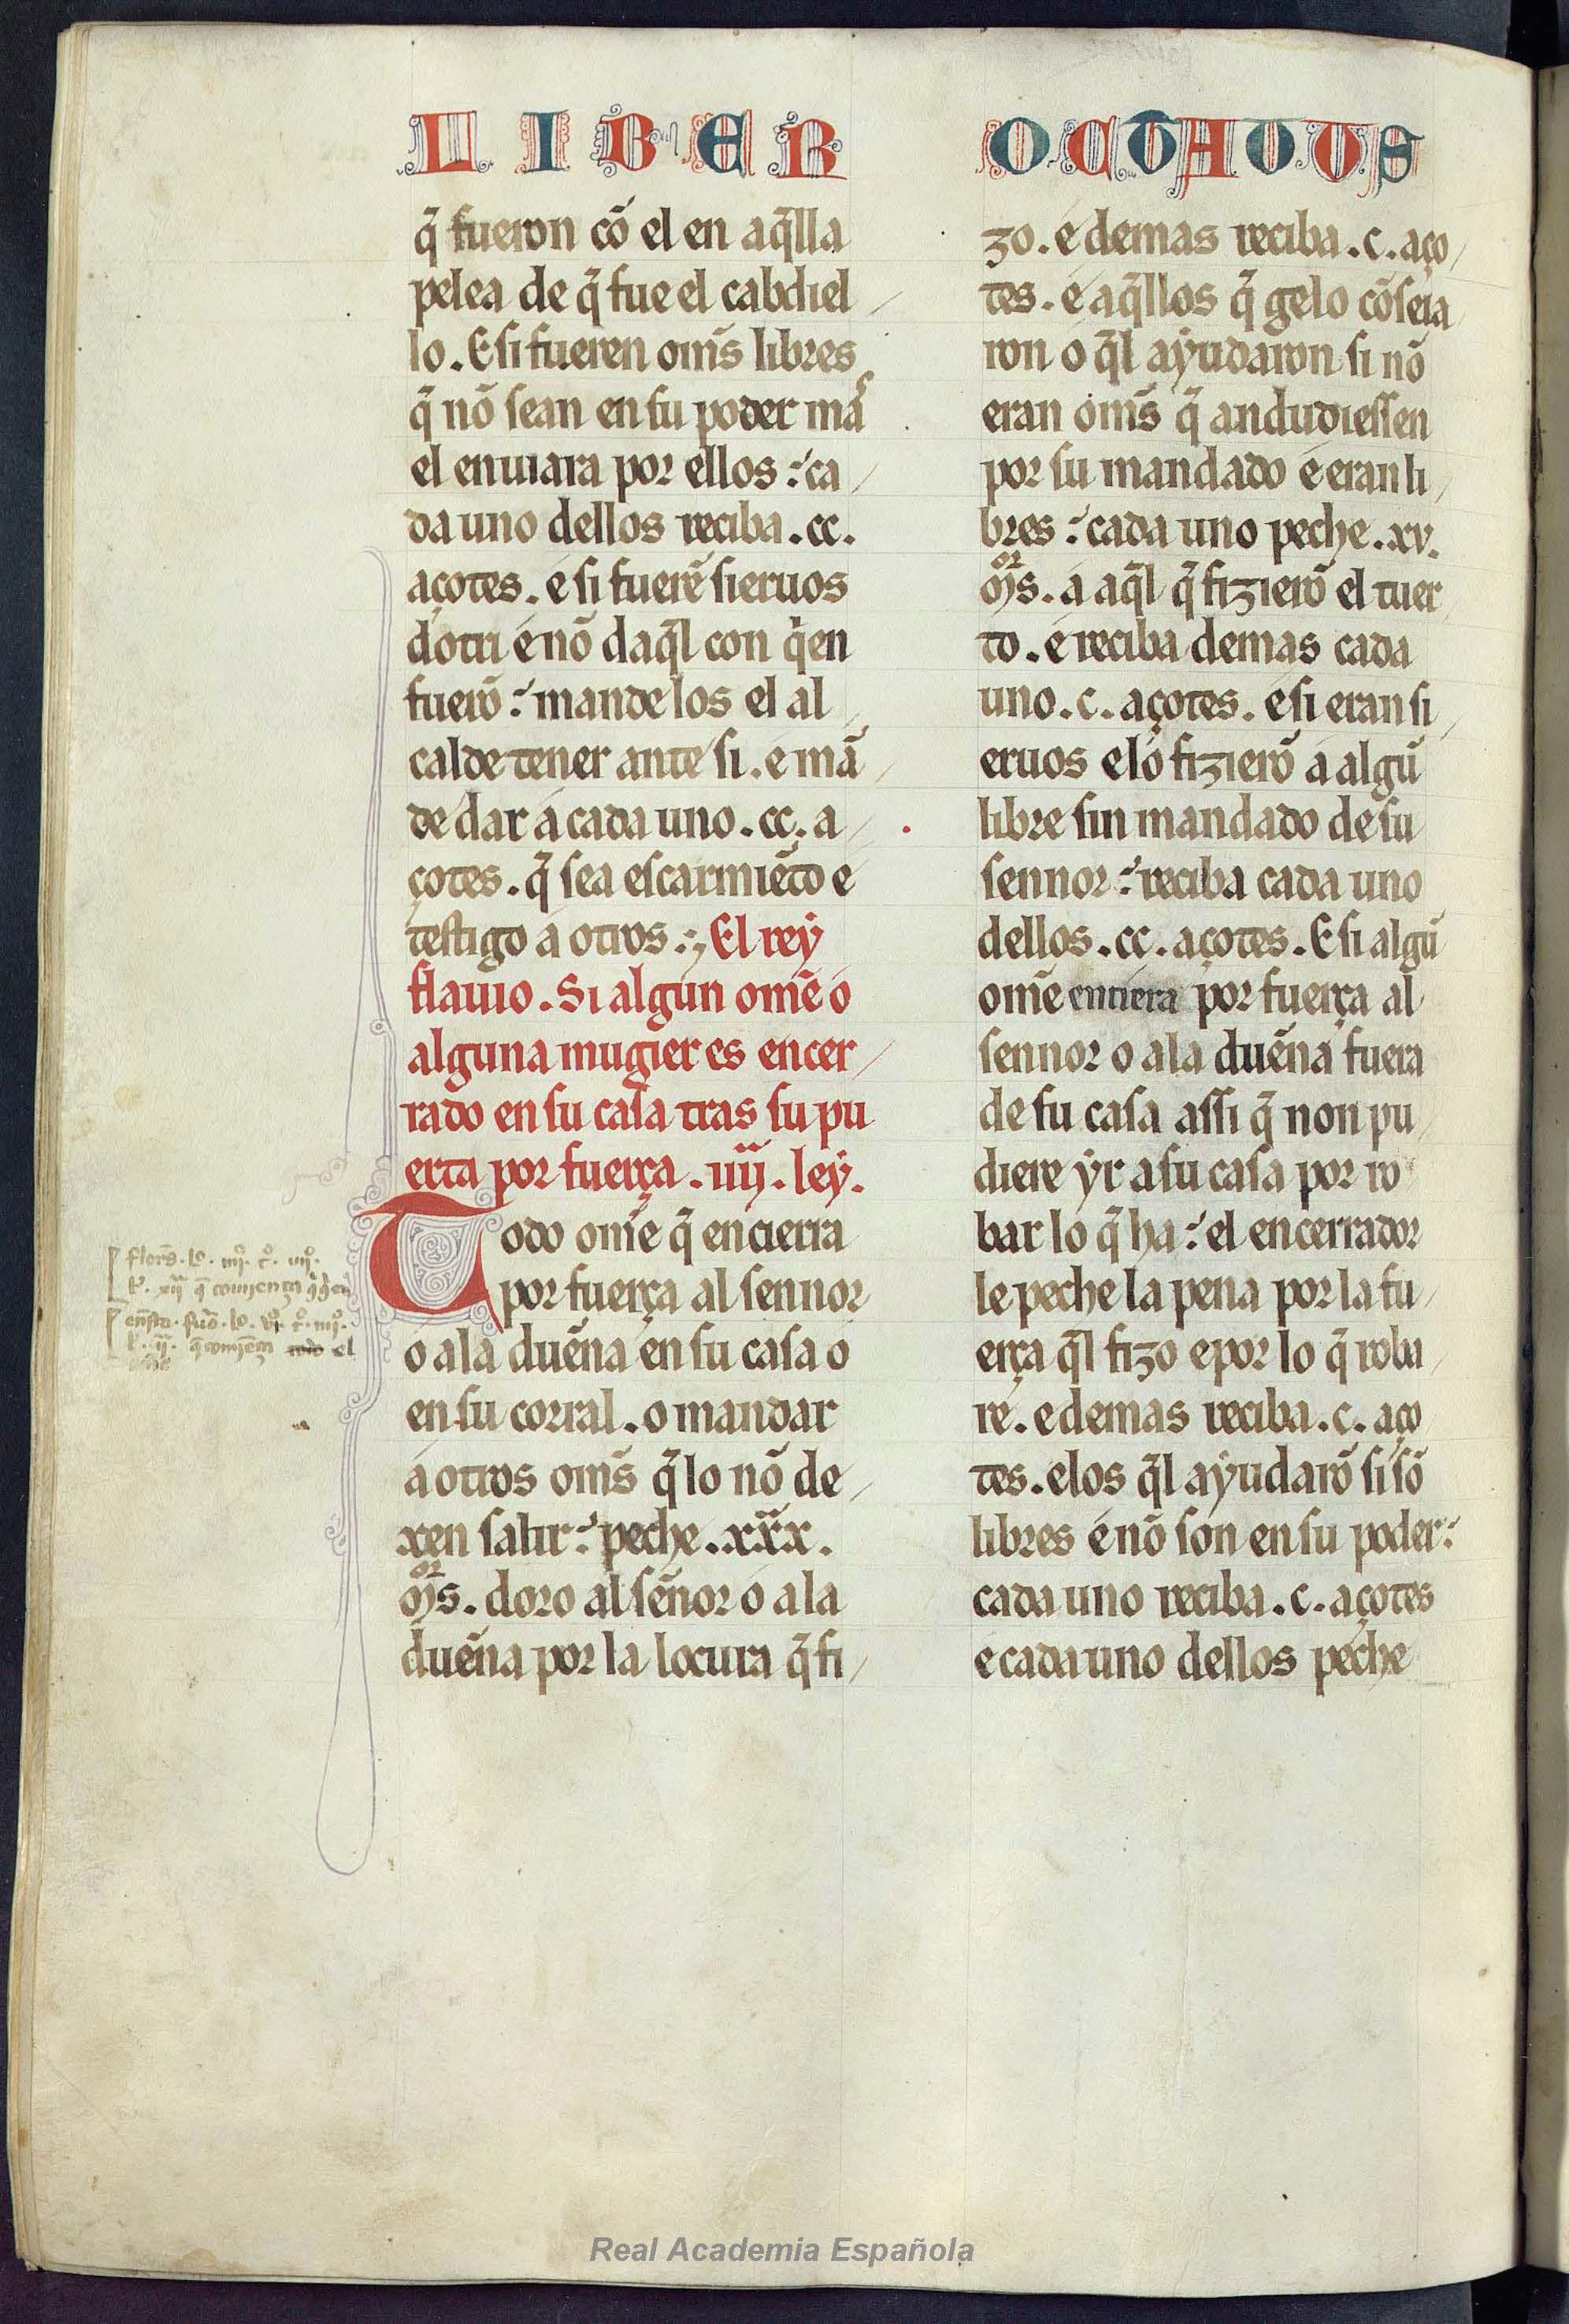 LIBER OCTAUUS
q̃ fueron cõ el en aq̃lla
pelea de q̃ fue el cabdiel
lo. E si fueren om̃s libres
q̃ nõ sean en su poder mas
el enuiara por ellos: ca
da uno dellos reciba .cc.
açotes. e si fuerẽ sieruos
dotri e nõ daq̃l con q̃en
fuerõ: mande los el al
calde tener ante si. e mã
de dar a cada uno .cc. a
çotes. q̃ sea escarmiẽto e
testigo a otros: El rey
flauio. Si algun om̃e o
alguna mugier es encer
rado en su casa tras su pu
erta por fuerça .iiij. ley.
Todo om̃e q̃ encierra
por fuerça al sennor
o a la duẽna en su casa o
en su corral. o mandar
a otros om̃s q̃ lo nõ de
xen salir: peche .xxx.
mr̃s. doro al sẽnor o a la
duẽna por la locura q̃ fi
zo. e demas reciba .c. aço
tes. e aq̃llos q̃ gelo cõseia
ron o q̃l ayudaron si nõ
eran om̃s q̃ andudiessen
por su mandado e eran li
bres: cada uno peche .xv.
mr̃s. a aq̃l q̃ fizierõ el tuer
to. e reciba demas cada
uno .c. açotes. e si eran si
eruos e lo fizierõ a algũ
libre sin mandado de su
sennor: reciba cada uno
dellos .cc. açotes. E si algũ
om̃e entiera por fuerça al
sennor o a la duẽna fuera
de su casa assi q̃ non pu
diere yr a su casa por ro
bar lo q̃ ha: el encerrador
le peche la pena por la fu
erça q̃l fizo e por lo q̃ roba
re. e demas reciba .c. aço
tes. e los q̃l ayudarõ si sõ
libres e nõ son en su poder:
cada uno reciba .c. açotes
e cada uno dellos peche
Real Academia Española